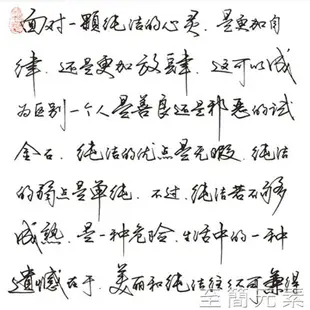 面对一颗纯洁的心灵，是更加自
律，还是更加放肆，这可以成
为区别一个人是善良还是邪恶的试
金石。纯洁的优点是无暇，纯洁
的弱点是单纯。不过，纯洁若不够
成熟，是一种危险。生活中的一种
遗憾在于，美丽和纯洁往往不可兼得
至簡元素